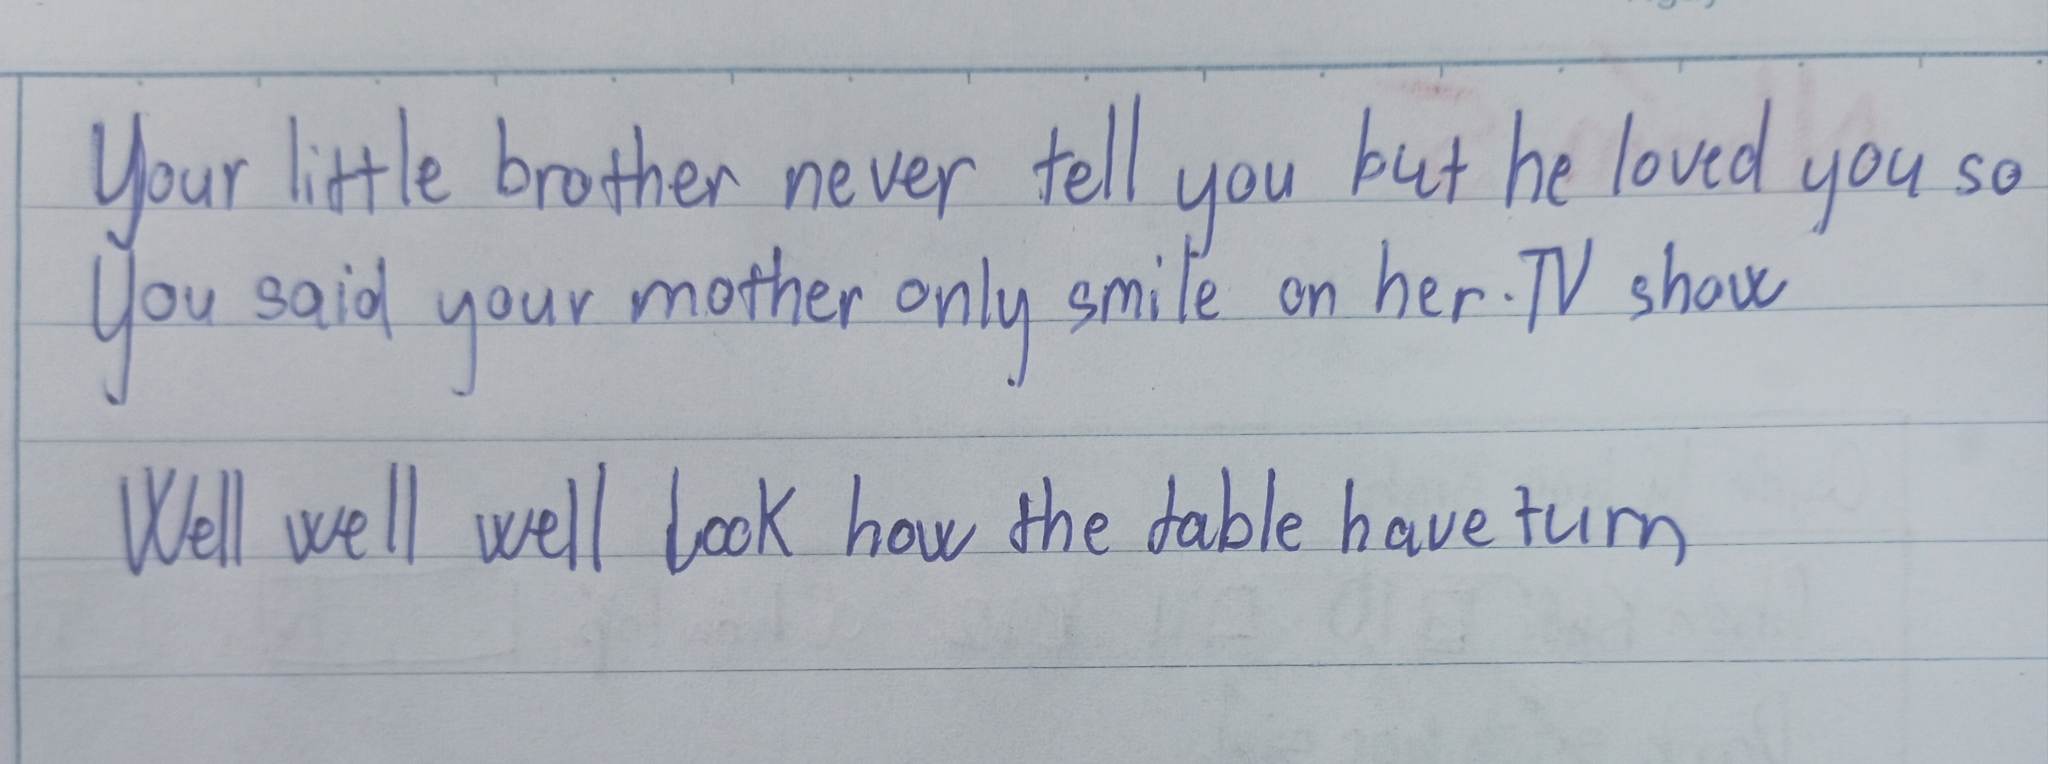 Your little brother never tell you but he loved you so
You said your mother only smile on her TV show
Well well well look how the table have turn